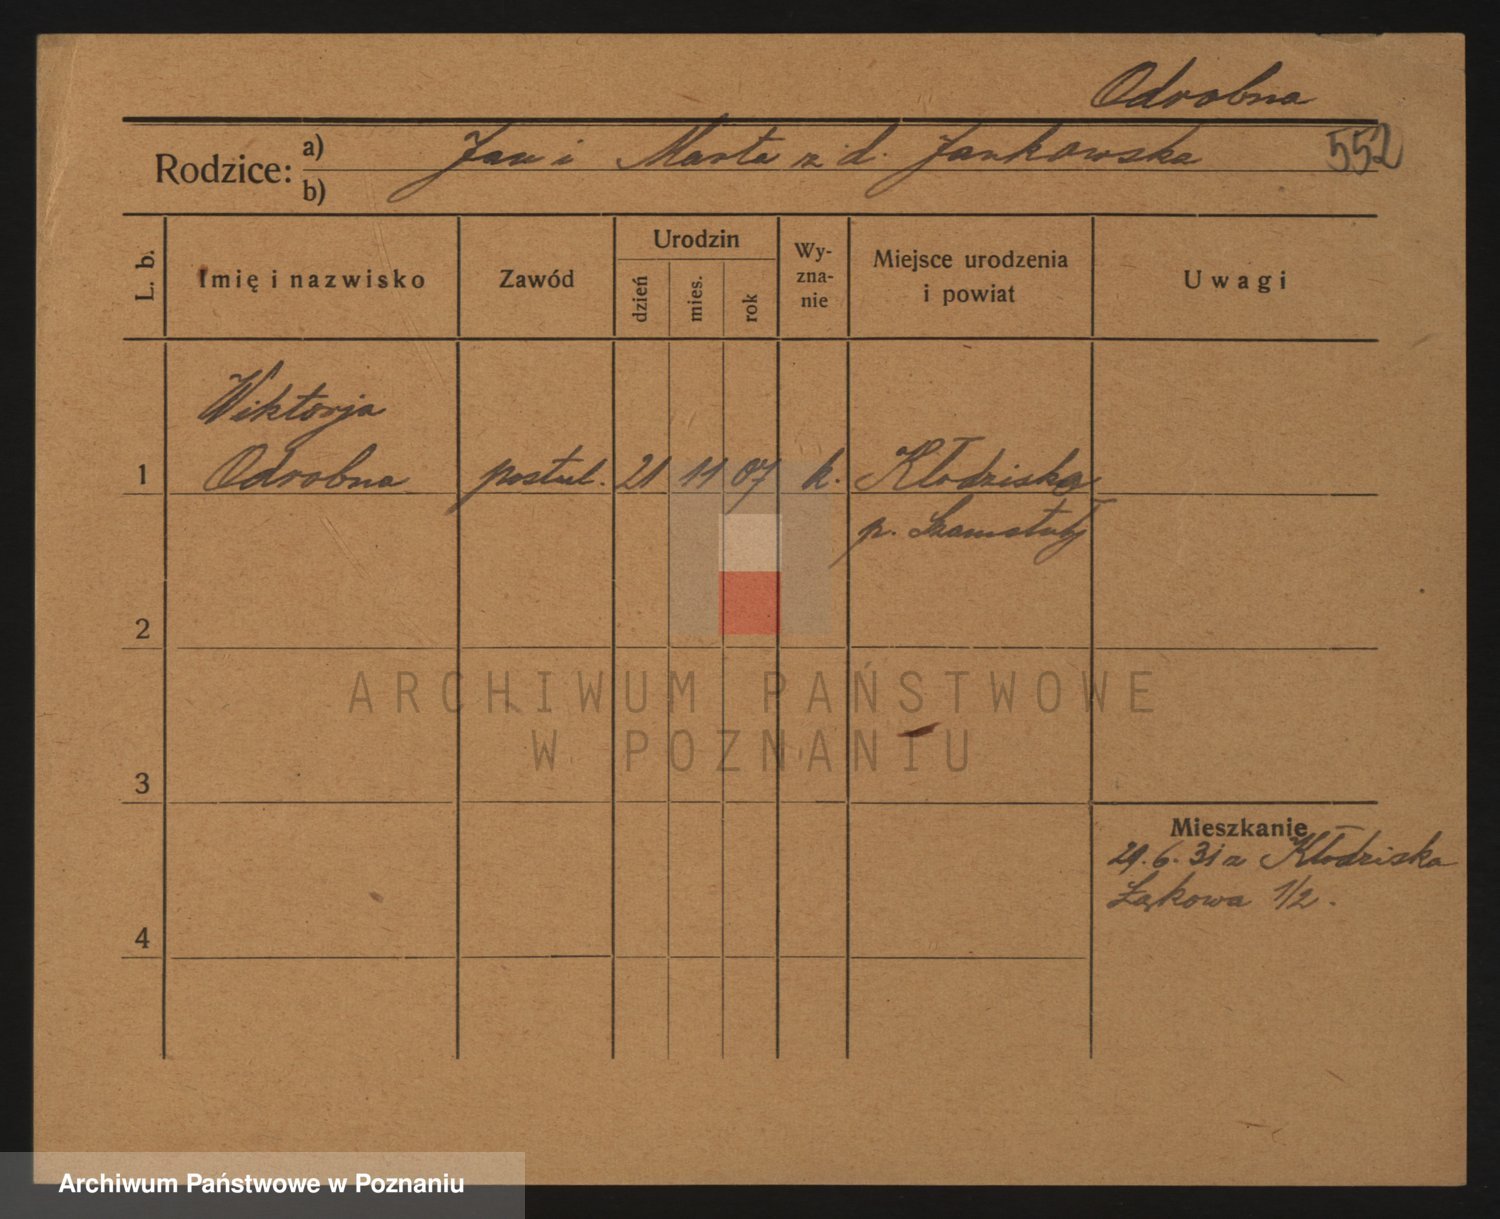 Odrobna
Rodzice: a) Jan i Marta z d. Jankowska 552
b)
L. b. Imię i nazwisko Zawód Urodzin dzień mies. rok Wyznanie Miejsce urodzenia i powiat Uwagi
Wiktorja
1 Odrobna postul. 21 11 07 k. Kłodziska
p. Szamotuły
2
ARCHIWUM PAŃSTWOWE
W POZNANIU
3
Mieszkanie
29. 6. 31 z Kłodziska
Łąkowa 1/2.
4
Archiwum Państwowe w Poznaniu